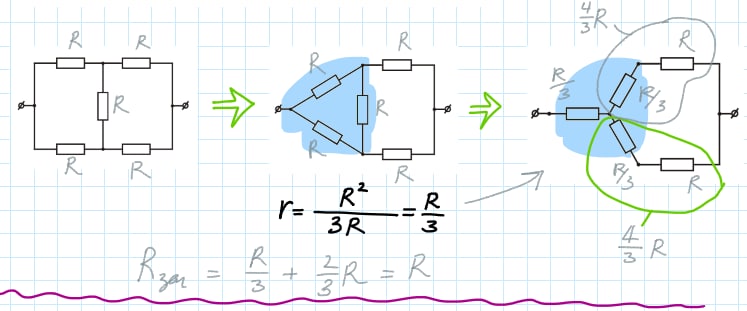 R R R R R
R R R R R
R/3 R/3 R/3 R R 4/3 R 4/3 R
r = R²/3R = R/3
R_заг = R/3 + 2/3 R = R